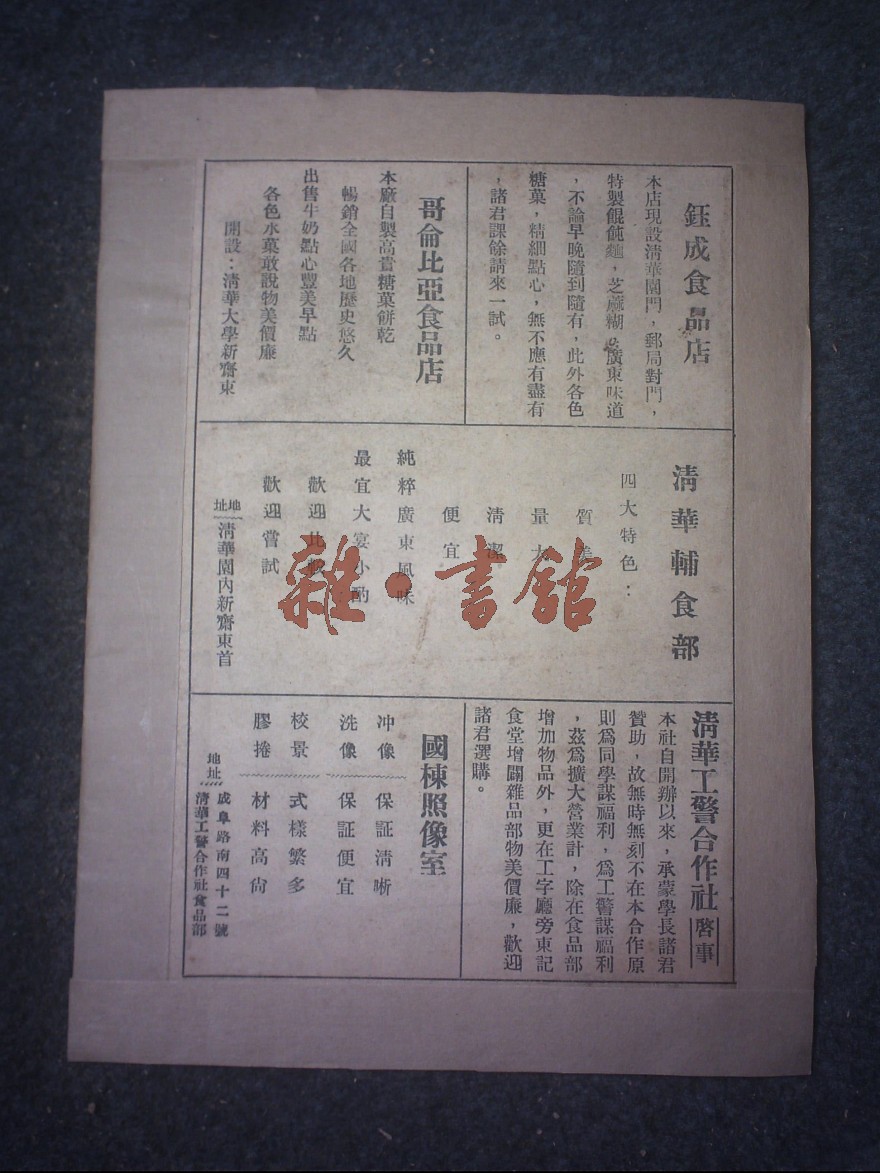 鈺成食品店
本店現設清華園門，郵局對門，
特製餛飩麵，芝蔴糊及廣東味道
，不論早晚隨到隨有，此外各色
糖菓，精細點心，無不應有盡有
，諸君課餘請來一試。
哥侖比亞食品店
本廠自製高貴糖菓餅乾
暢銷全國各地歷史悠久
出售牛奶點心豐美早點
各色水菓敢說物美價廉
開設：清華大學新齋東
清華輔食部
四大特色：
質美
量大
清潔
便宜
純粹廣東風味
最宜大宴小酌
歡迎比較
歡迎嘗試
地址 清華園內新齋東首
清華工警合作社啓事
本社自開辦以來，承蒙學長諸君
贊助，故無時無刻不在本合作原
則爲同學謀福利，爲工警謀福利
，茲爲擴大營業計，除在食品部
增加物品外，更在工字廳旁東記
食堂增闢雜品部物美價廉，歡迎
諸君選購。
國棟照像室
冲像 保証清晰
洗像 保証便宜
校景 式樣繁多
膠捲 材料高尙
地址 成阜路南四十二號
清華工警合作社食品部
雜·書館